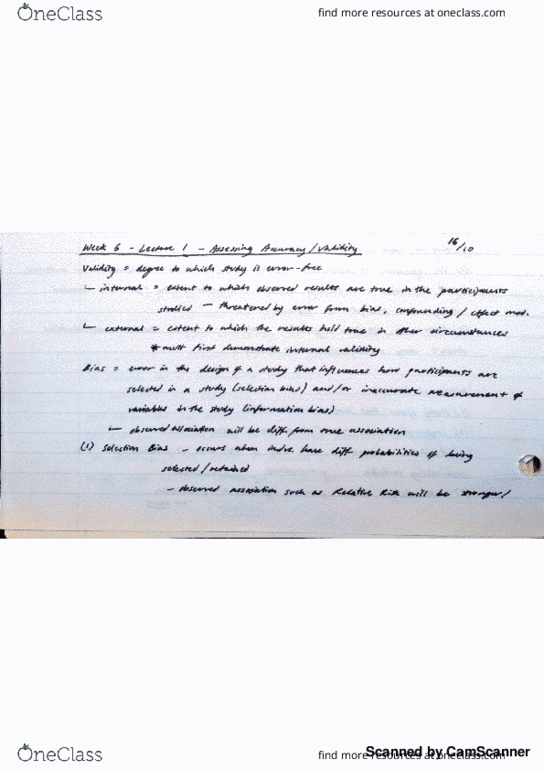 OneClass
find more resources at oneclass.com
Week 6 - Lecture 1 - Assessing Accuracy/Validity 16/10
Validity = degree to which study is error-free
↳ internal = extent to which observed results are true in the participants
studied - threatened by error from bias, confounding / effect mod.
↳ external = extent to which the results hold true in other circumstances
* must first demonstrate internal validity
Bias = error in the design of a study that influences how participants are
selected in a study (selection bias) and/or inaccurate measurement of
variables in the study (information bias)
↳ observed association will be diff. from true association
(1) Selection Bias - occurs when indivs. have diff. probabilities of being
selected/retained
- observed association such as Relative Risk will be stronger/
OneClass
find more resources at oneclass.com
Scanned by CamScanner